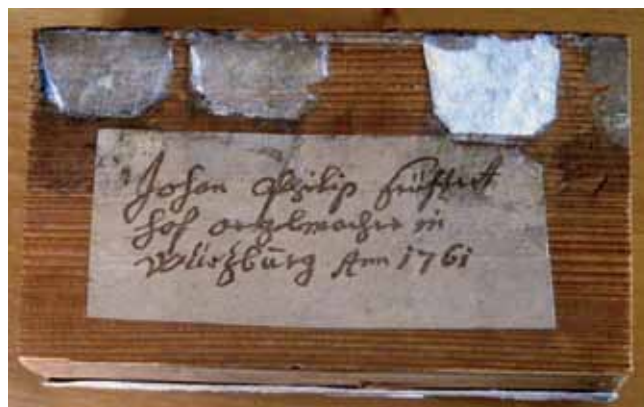 Johan Philip Seüffert
hof orgelmacher in
Würtzburg Ann 1761